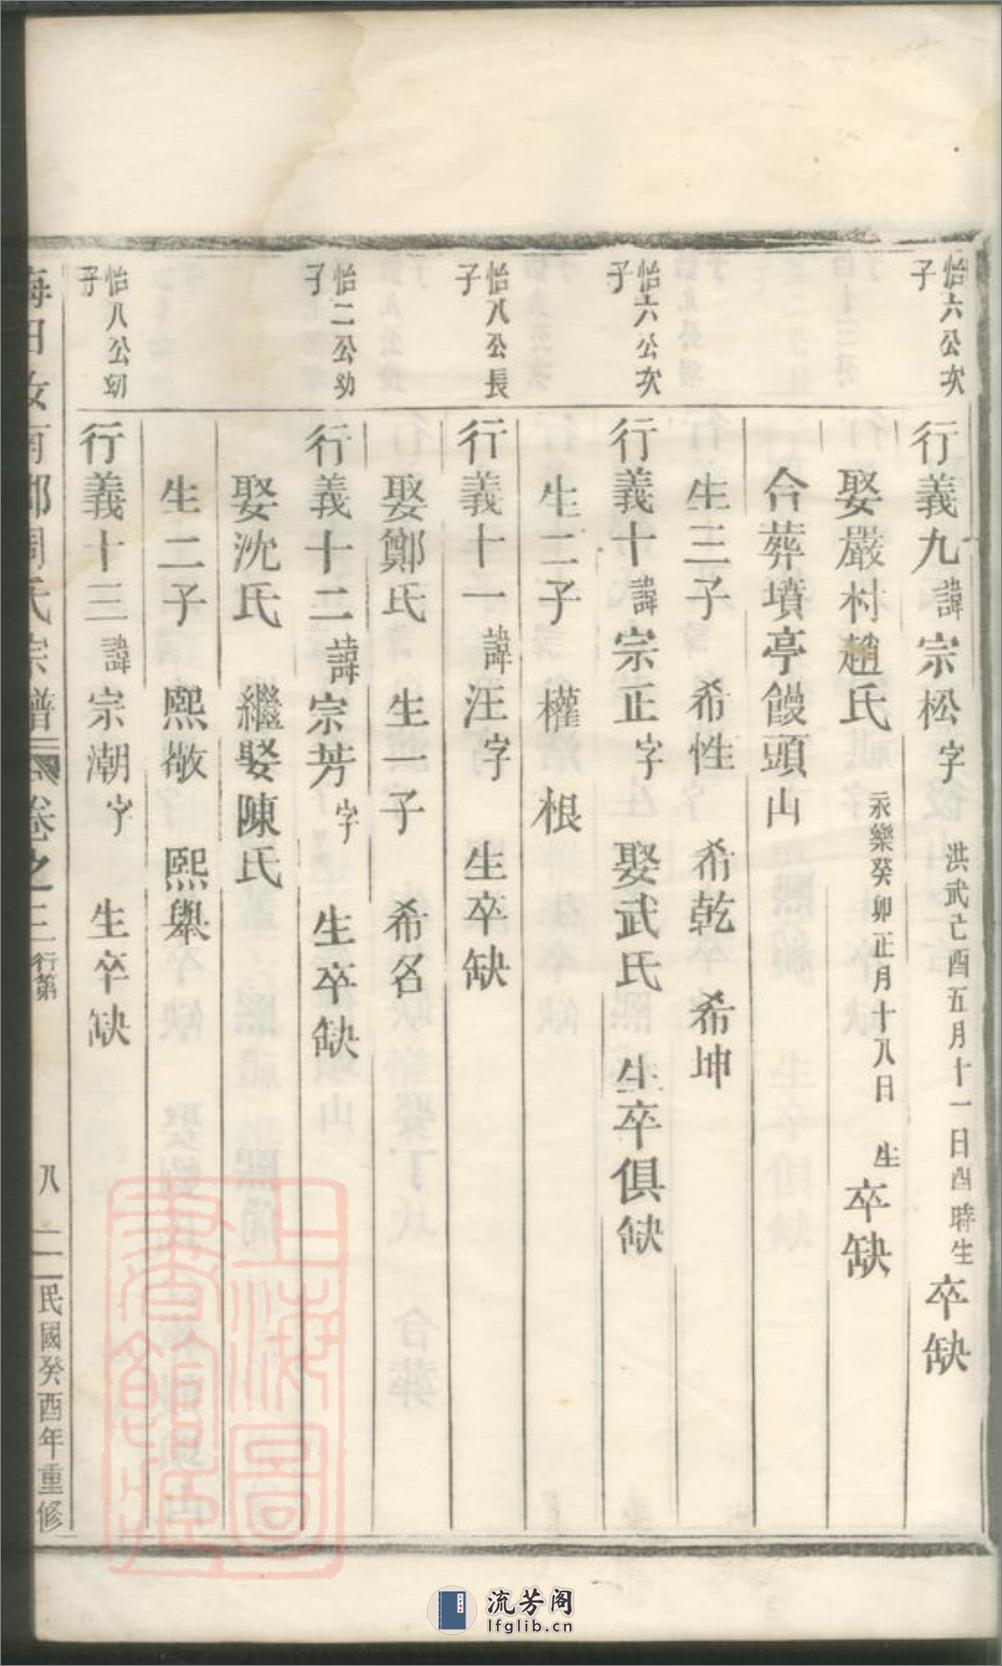 怡六公次子
行義九諱宗松字 洪武己酉五月十一日酉時生 卒缺
娶嚴村趙氏 永樂癸卯正月十八日 生 卒缺
合葬墳亭饅頭山
生三子 希性 希乾 希坤
怡六公次子
行義十諱宗正字 娶武氏 生卒俱缺
生二子 權 根
怡八公長子
行義十一諱汪字 生卒缺
娶鄭氏 生一子 希名
怡二公幼子
行義十二諱宗芳字 生卒缺
娶沈氏 繼娶陳氏
生二子 熙敬 熙舉
怡八公幼子
行義十三諱宗潮字 生卒缺
海田汝南郡周氏宗譜 卷之三 行第 八 民國癸酉年重修
上海圖書館藏
流芳阁
lfglib.cn